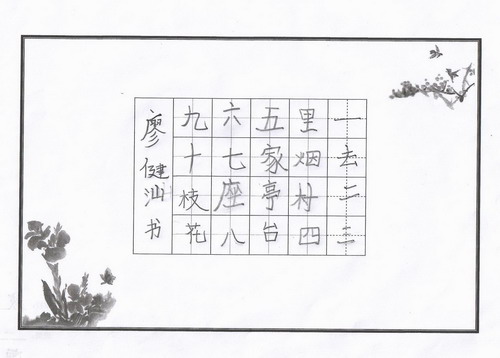 一去二三
里烟村四
五家亭台
六七座八
九十枝花
廖健汕书